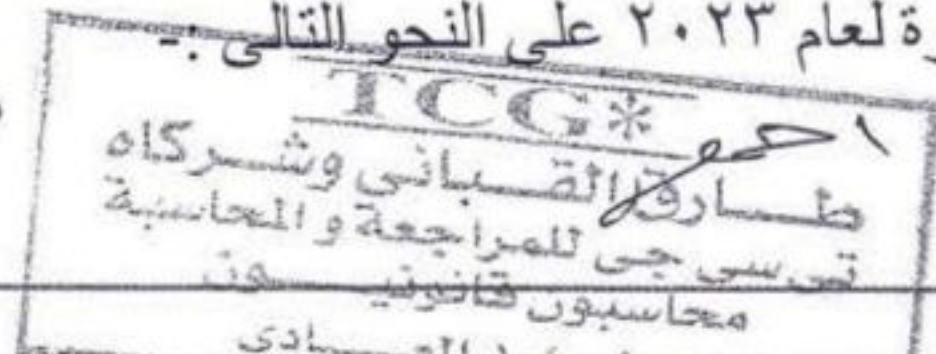 ة لعام ٢٠٢٣ على النحو التالى :-
TCG*
طارق القبانى وشركاه
تى سى جى للمراجعة والمحاسبة
محاسبون قانونيون